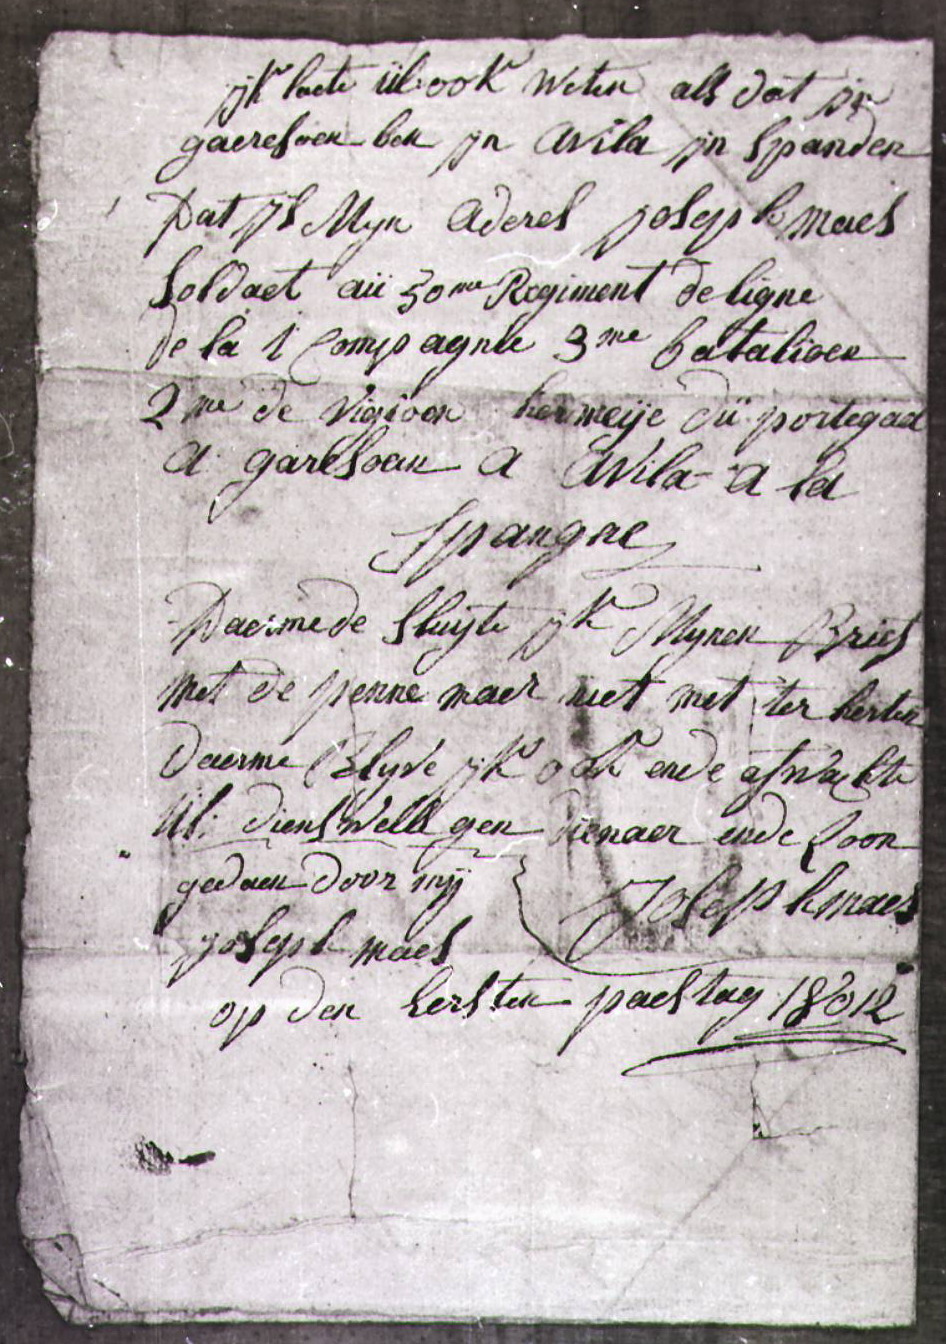 ijk laete ül: ook weten als dat ijk
gaeresoen ben ijn avila ijn Spanden
Dat js Mijn aderes joseph maes
Soldaet aü 50me Regiment de ligne
de la 1 Compagnie 3me batalioen
2me de viesioen hermeije dü portegael
a garesoen a avila a la
Spangne
Daermede sluijte ijk Mijnen Brief
met de penne maer niet met ter herten
daerme Blijve ijk ook ende afwackte
Ul: dienswelle gen dienaer ende soon
gedaen door mij Joseph maes
joseph maes
op den Eersten paestag 18012